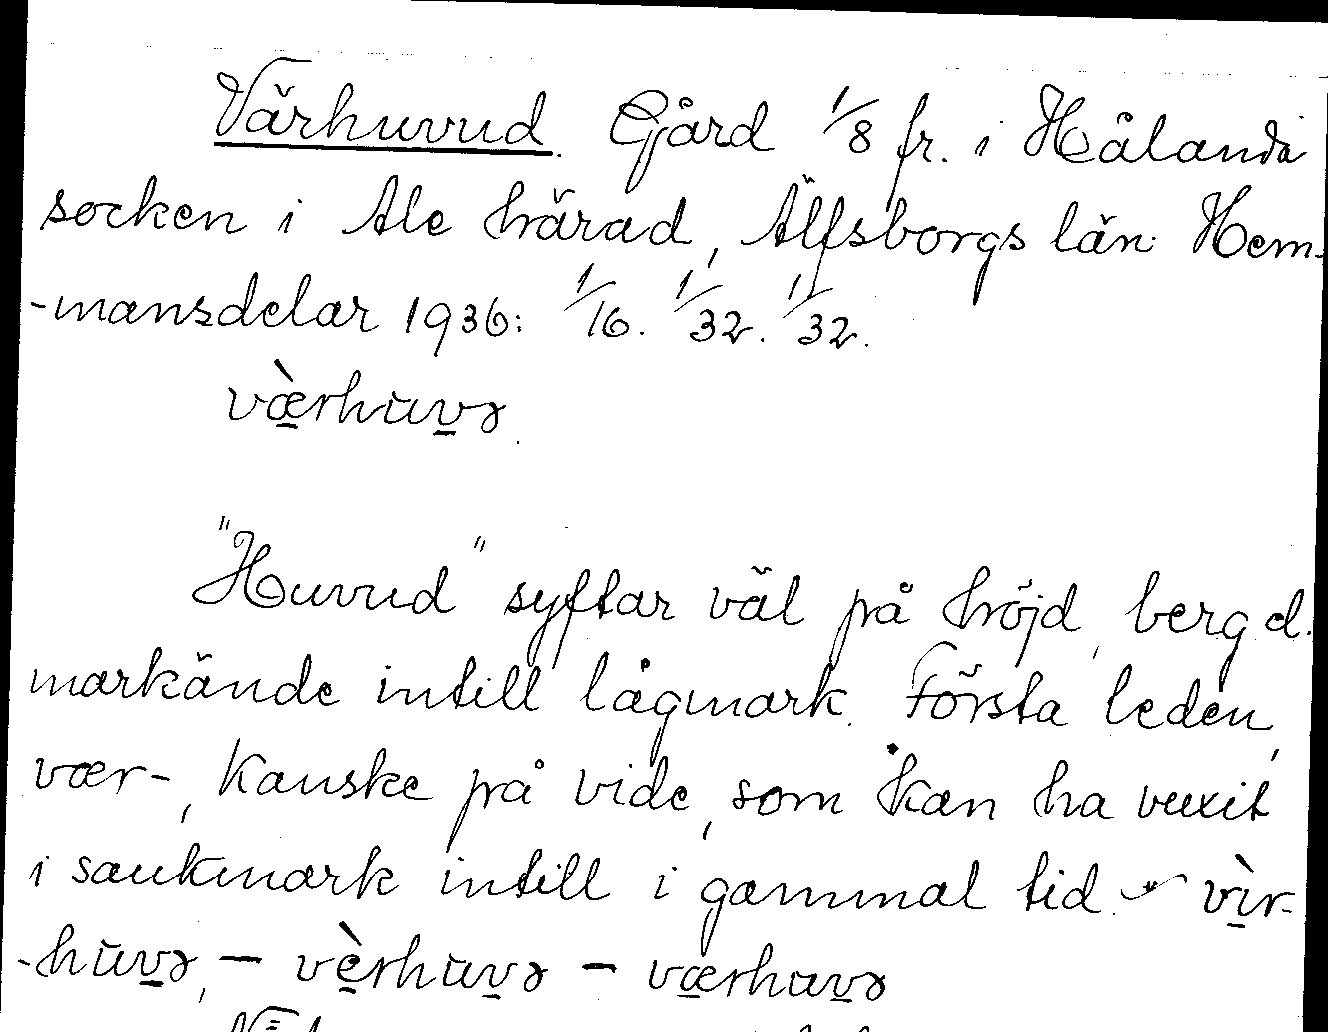 Värhuvud. Gård 1/8 fr. i Hålanda
socken i Ale härad, Älfsborgs län. Hem-
-mansdelar 1936: 1/16. 1/32. 1/32.
væ̀rhūvə.
"Huvud" syftar väl på höjd, berg el.
markände intill lågmark. Första leden,
vær-, kanske på vide, som kan ha vuxit
i sankmark intill i gammal tid. * vìr-
-hūvə, – vèrhūvə – værhuvə